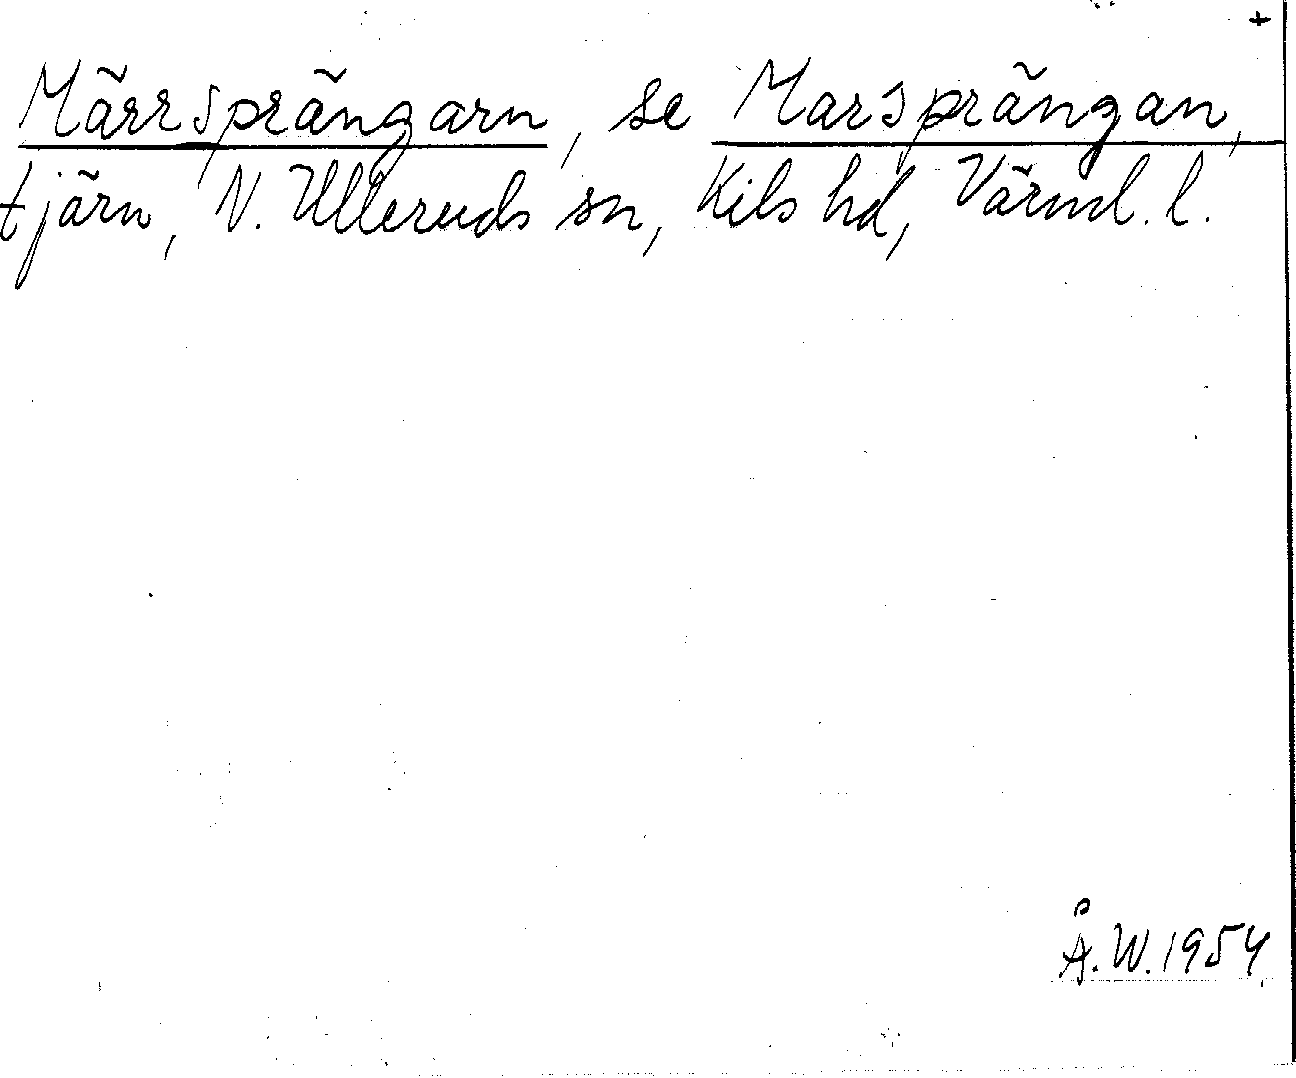 +
Märrsprängarn, se Marsprängan,
tjärn, N. Ulleruds sn, Kils hd, Värml. l.
Å.W. 1954